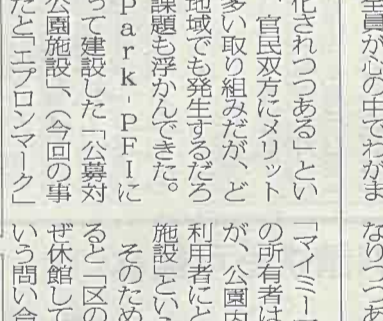 全員が心の中でわがま
化されつつある」とい
、官民双方にメリット
多い取り組みだが、ど
地域でも発生するだろ
課題も浮かんできた。
Park-PFIに
って建設した「公募対
公園施設」、(今回の事
たと「エプロンマーク」
なりつつあ
「マイミー
の所有者は
が、公園内
利用者にと
施設」とい
そのため
ると「区の
ぜ休館して
いう問い合